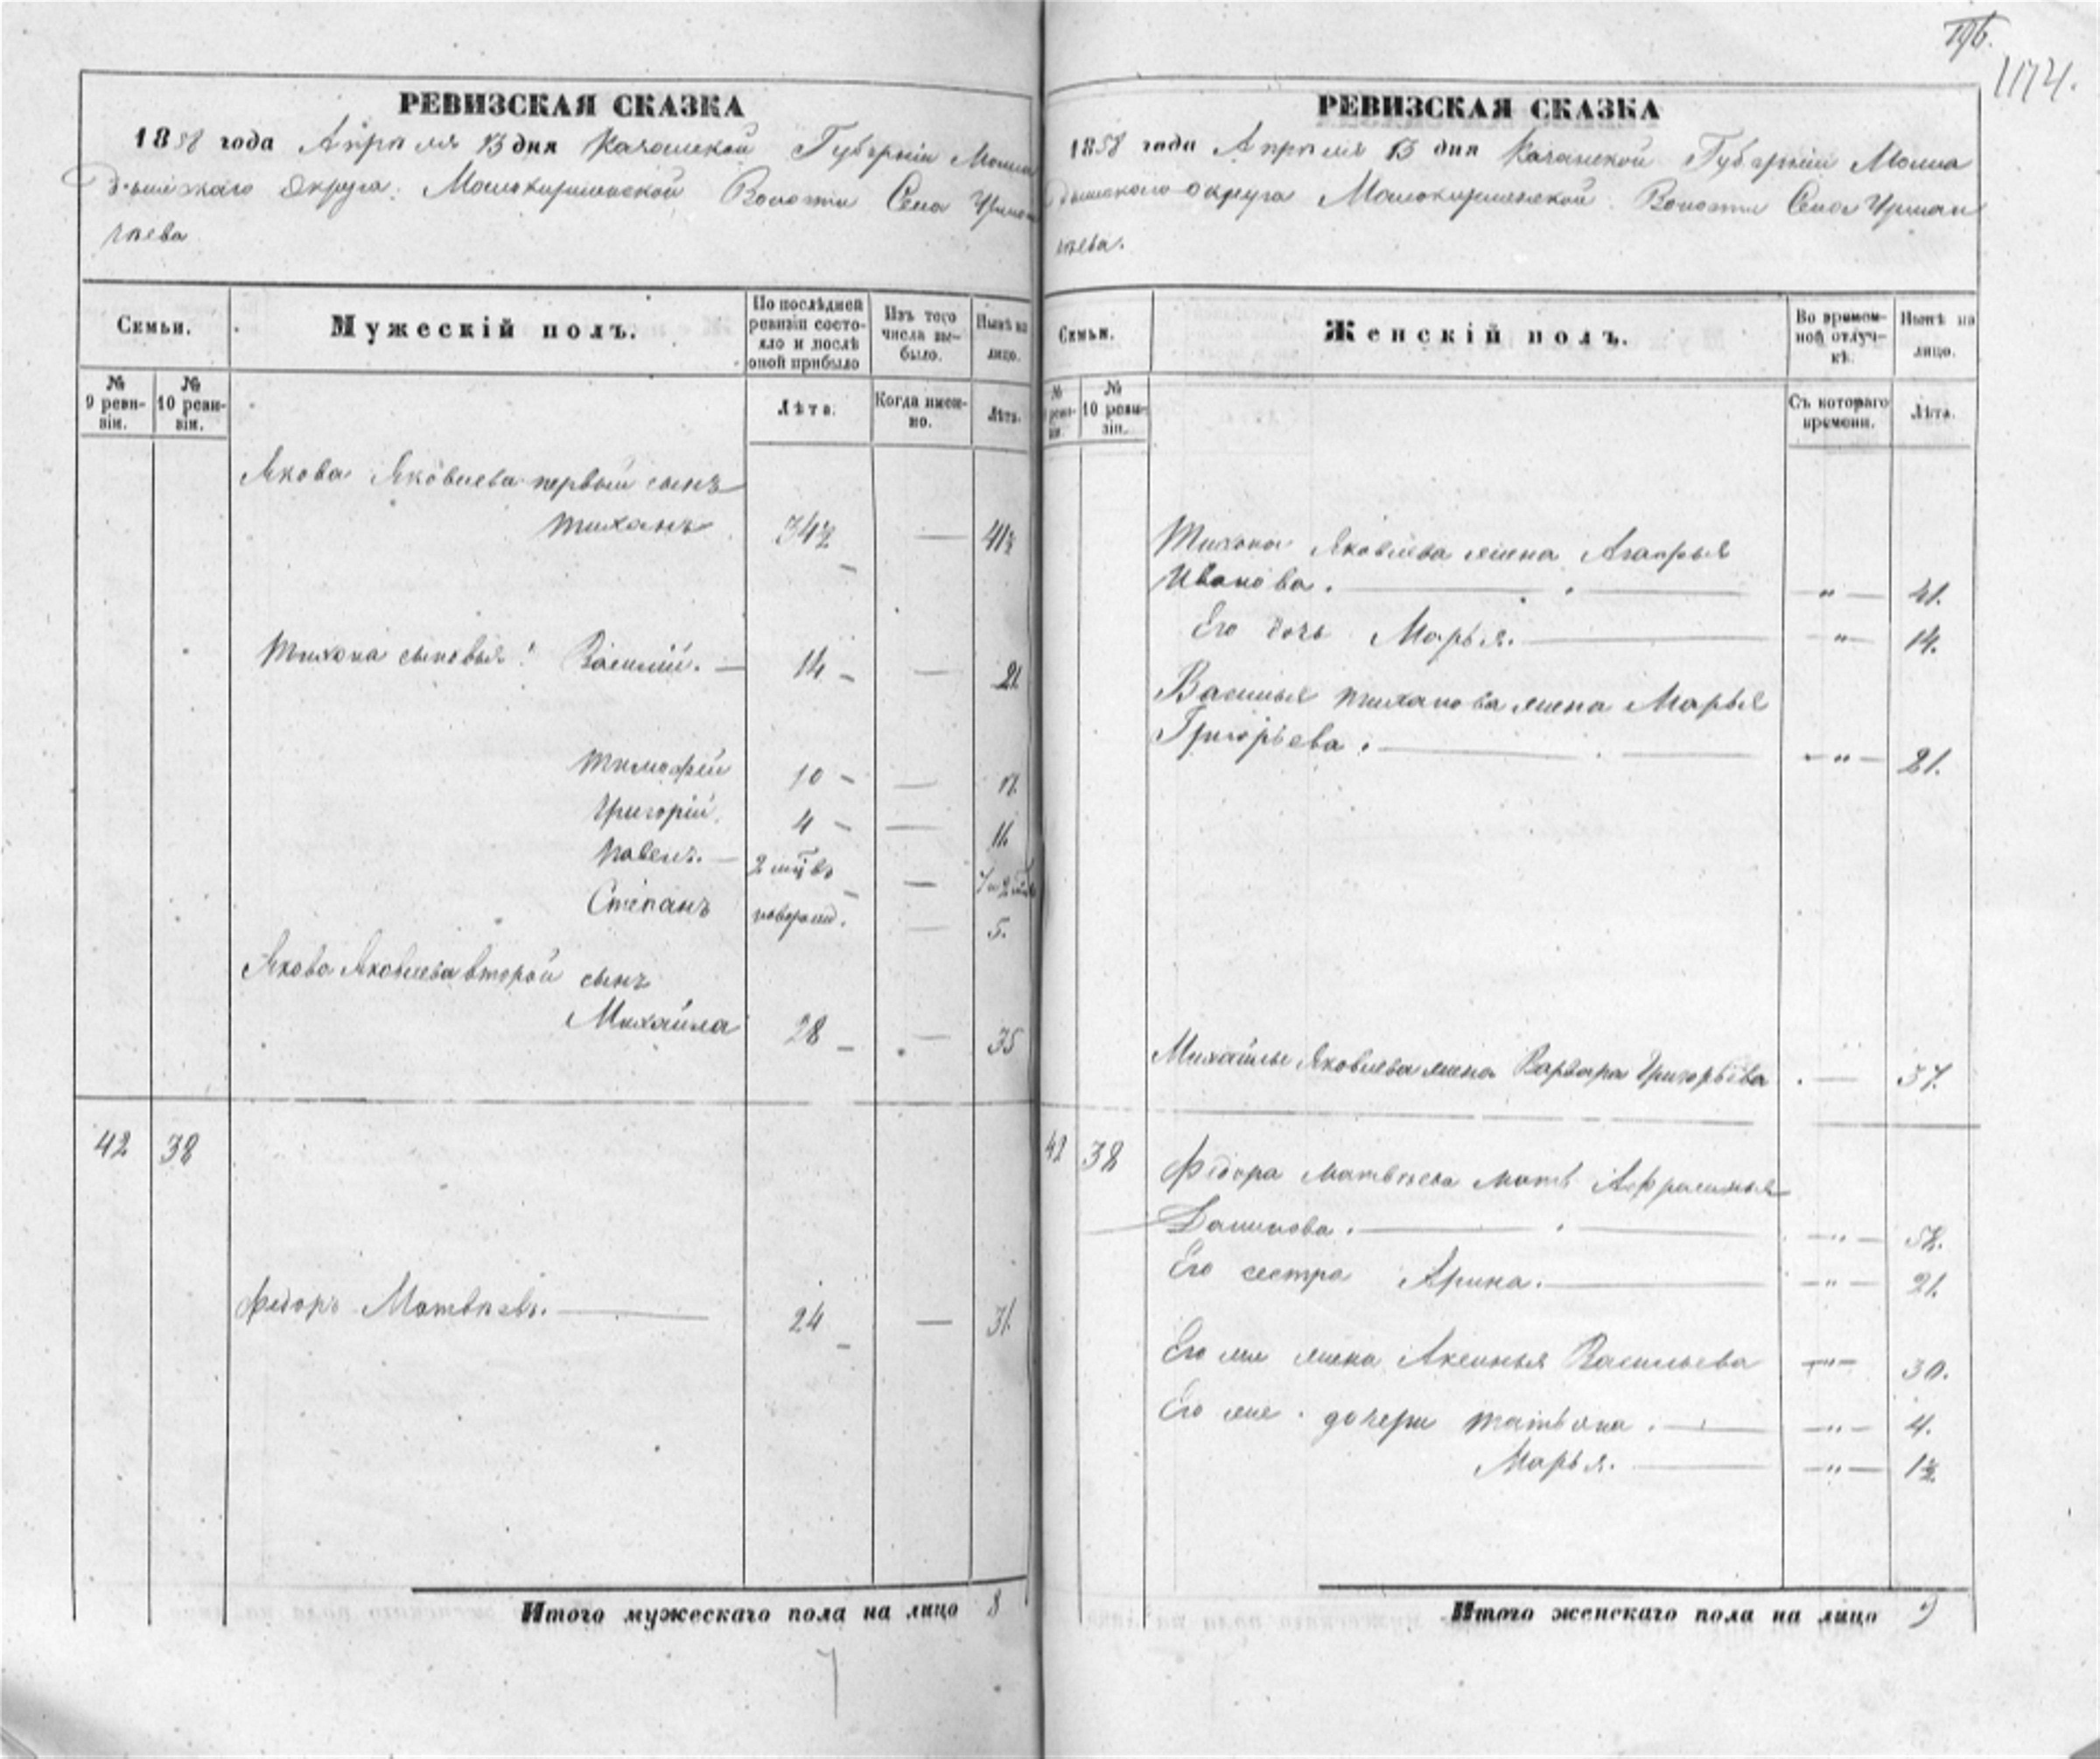 1174.
РЕВИЗСКАЯ СКАЗКА
1858 года Апрѣля 13 дня Казанской Губерніи Мама
дышскаго Округа. Волости Села
чѣева
Семьи.
Мужескій полъ.
По послѣдней ревизіи состояло и послѣ оной прибыло
Изъ того числа выбыло.
Нынѣ на лицо.
№ 9 ревизіи.
№ 10 ревизіи.
Лѣта.
Когда именно.
Лѣта.
Якова Яковлева первый сынъ
Тиханъ 34½ — 41½
Тихона сыновья: Василий. — 14 — 21
Тимофей 10 — 17.
Григорій. 4 — 11.
Павелъ. — 2 мцв — 7 и 2
Степанъ новорожд. — 5.
Якова Яковлева второй сынъ
Михайла 28 — 35
42 38
Федоръ Матвѣевъ. — 24 — 31.
Итого мужескаго пола на лицо 8
РЕВИЗСКАЯ СКАЗКА
1858 года Апрѣля 13 дня Казанской Губерніи Мама
дышскаго Округа Волости Села
чѣева.
Семьи.
Женскій полъ.
Во временной отлучкѣ.
Нынѣ на лицо.
№ 9 ревизіи.
№ 10 ревизіи.
Съ котораго времени.
Лѣта.
Тихона Яковлева жена Агафья
Иванова. — " — 41.
Его дочь Марья. — " — 14.
Василья Тиханова жена Марья
Григорьева. — " — 21.
Михайлы Яковлева жена Варвара Григорьева — 37.
42 38
Федора Матвѣева мать Афросинья
Данилова. — " —
Его сестра Арина. — " — 21.
Его же жена Аксинья Васильева — " — 30.
Его же дочери Татьяна. — " — 4.
Марья. — " — 1½
Итого женскаго пола на лицо 9